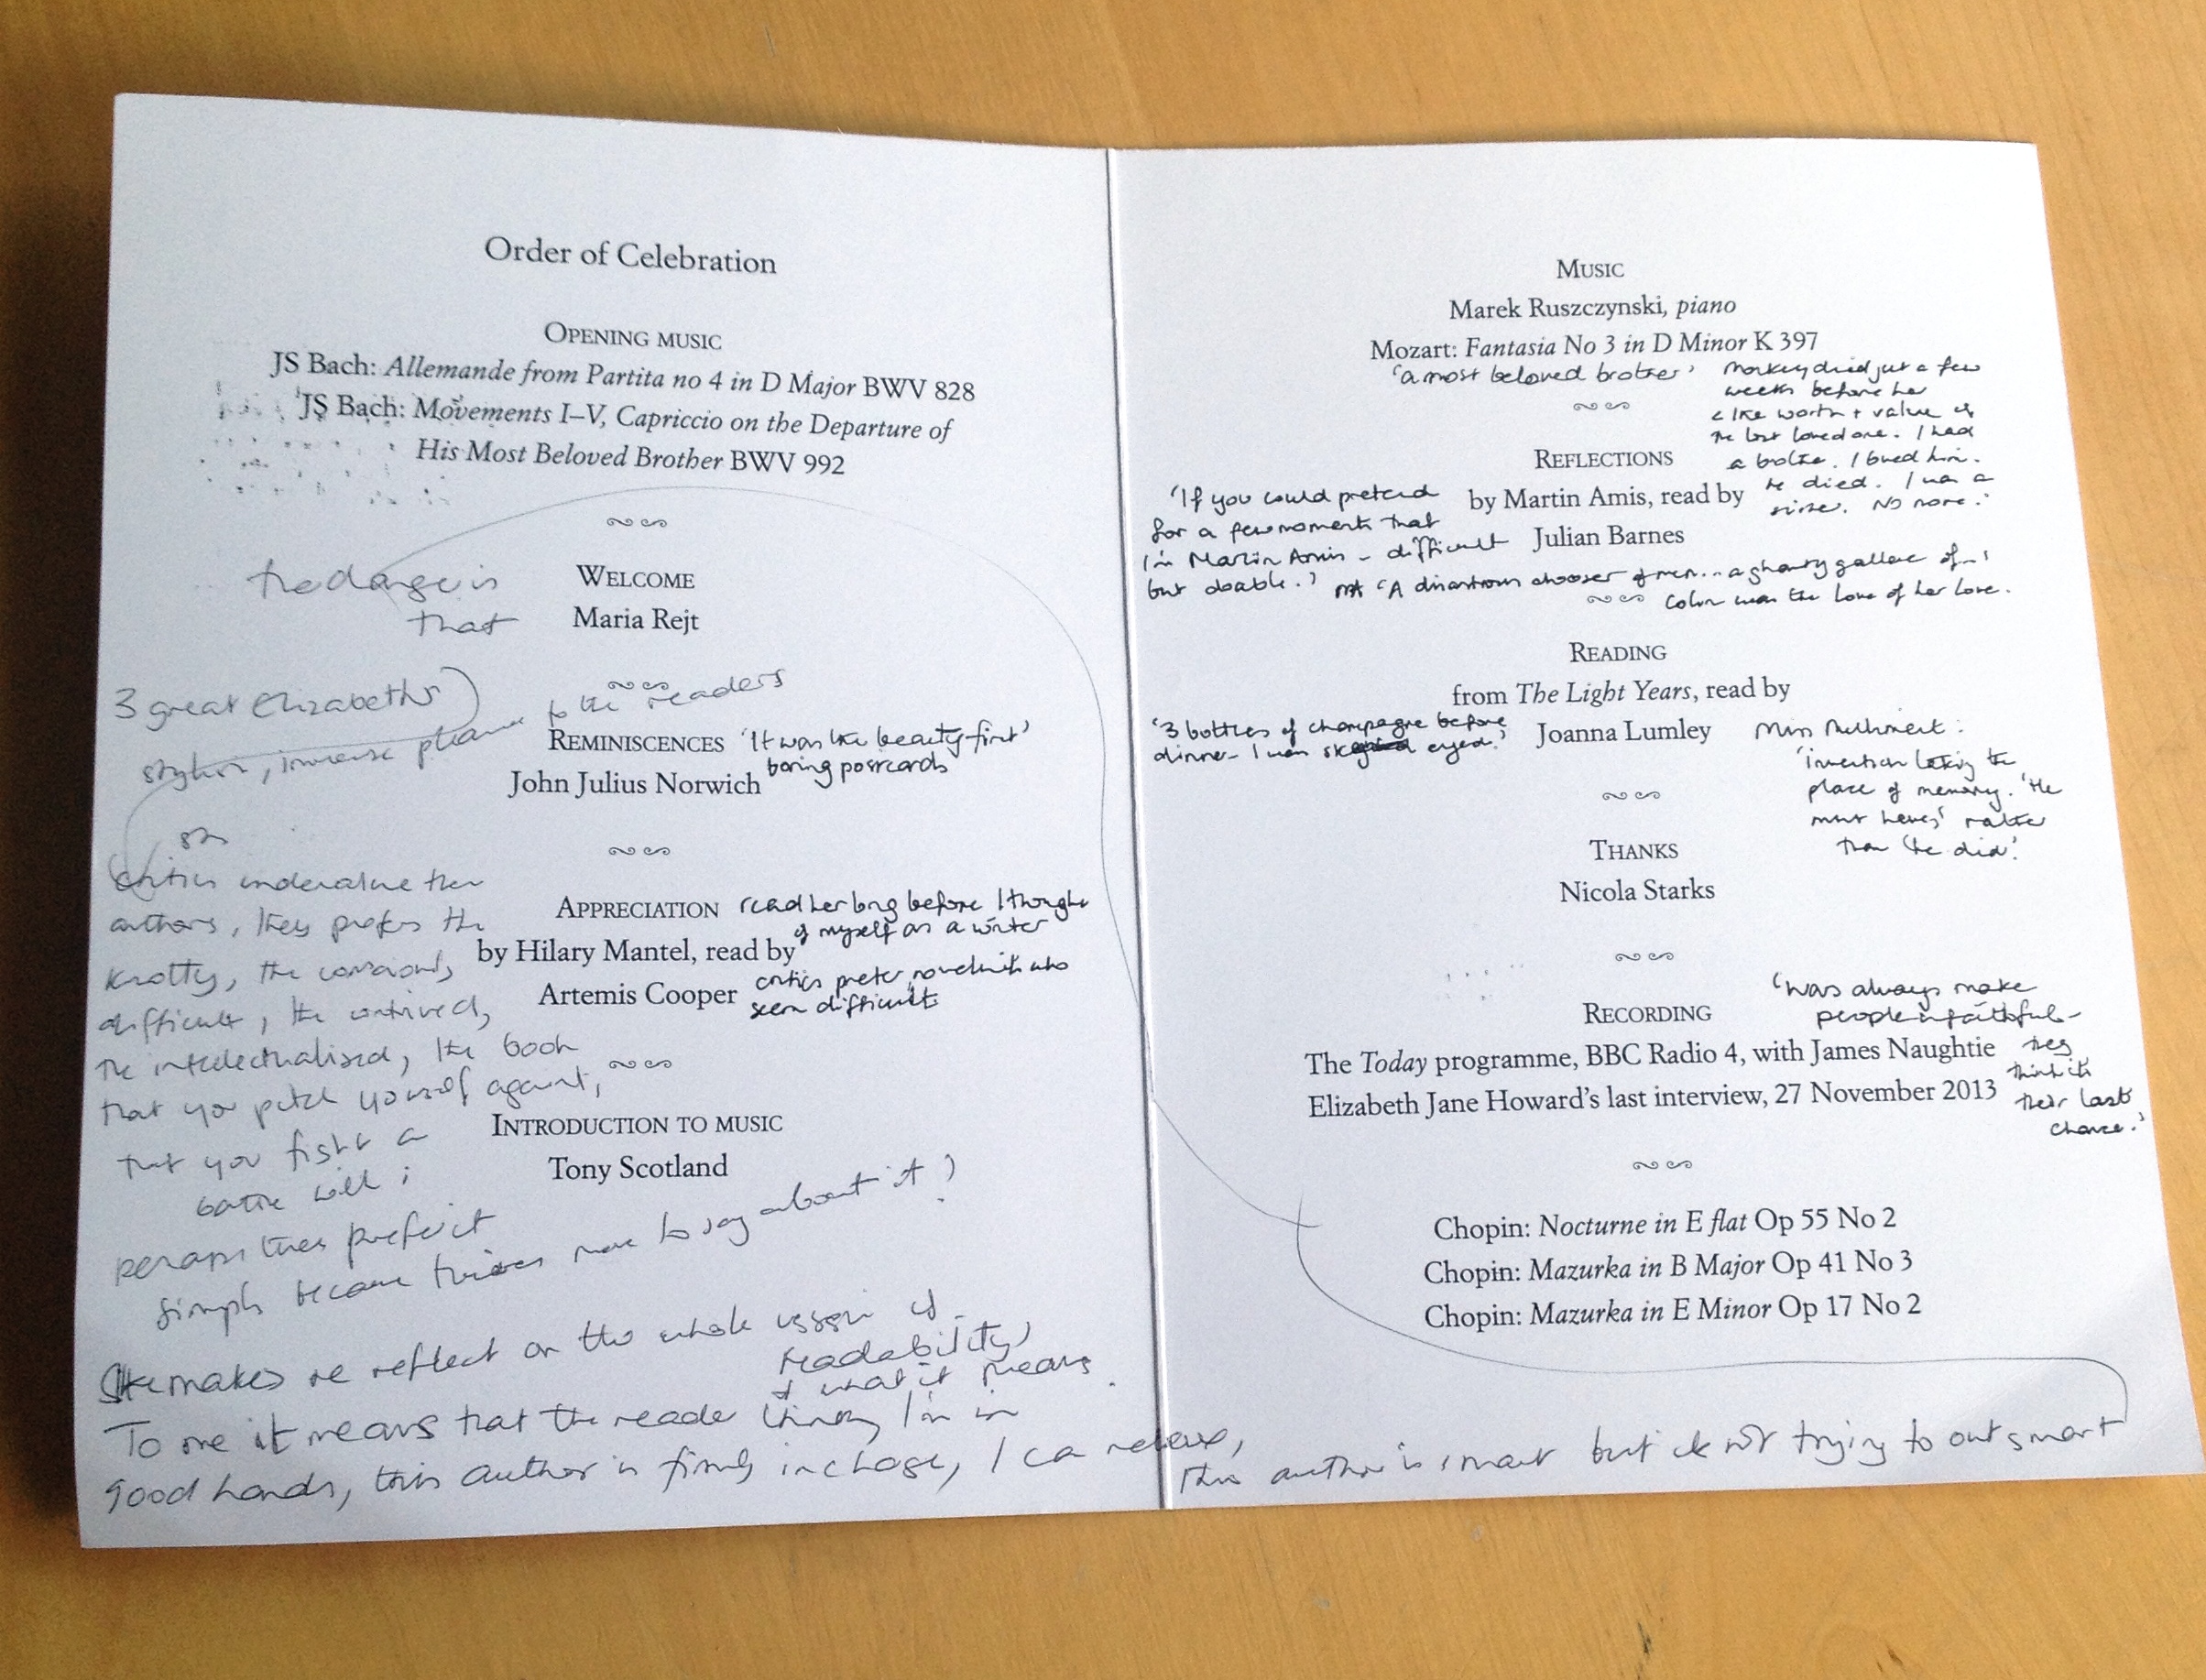 Order of Celebration
OPENING MUSIC
JS Bach: Allemande from Partita no 4 in D Major BWV 828
JS Bach: Movements I–V, Capriccio on the Departure of
His Most Beloved Brother BWV 992
WELCOME
Maria Rejt
that
3 great Elizabeths
to the readers
REMINISCENCES
'It was like beauty-first'
John Julius Norwich
boring postcards
APPRECIATION
read her long before I thought
of myself as a writer
by Hilary Mantel, read by
Artemis Cooper
critics prefer novelists who
seem difficult
critics undervalue their
authors, they prefer the
knotty, the consciously
difficult, the contrived,
the intellectualised, the book
that you pitch yourself against,
that you fight a
battle with;
perhaps they prefer it
simply because there's more to say about it?
INTRODUCTION TO MUSIC
Tony Scotland
She makes me reflect on the whole issue of
readability,
& what it means.
To me it means that the reader thinks, I'm in
good hands, this author is firmly in charge, I can relax,
this author is smart but is not trying to outsmart
MUSIC
Marek Ruszczynski, piano
Mozart: Fantasia No 3 in D Minor K 397
'a most beloved brother'
died just a few
weeks before her
worth + value of
the lost loved one. I had
a brother. I loved him.
He died. I was a
sister. No more.'
REFLECTIONS
by Martin Amis, read by
Julian Barnes
'If you could pretend
for a few moments that
I'm Martin Amis – difficult
but doable.'
'A disastrous chooser of men... a ghastly gallere of...'
Colin was the love of her love.
READING
from The Light Years, read by
Joanna Lumley
'3 bottles of champagne before
dinner – I was eyed.'
Miss Milliment:
'invention taking the
place of memory. 'He
must have' rather
than 'he did'.'
THANKS
Nicola Starks
RECORDING
The Today programme, BBC Radio 4, with James Naughtie
Elizabeth Jane Howard's last interview, 27 November 2013
'Wars always make
people unfaithful –
they
think it's
their last
chance.'
Chopin: Nocturne in E flat Op 55 No 2
Chopin: Mazurka in B Major Op 41 No 3
Chopin: Mazurka in E Minor Op 17 No 2